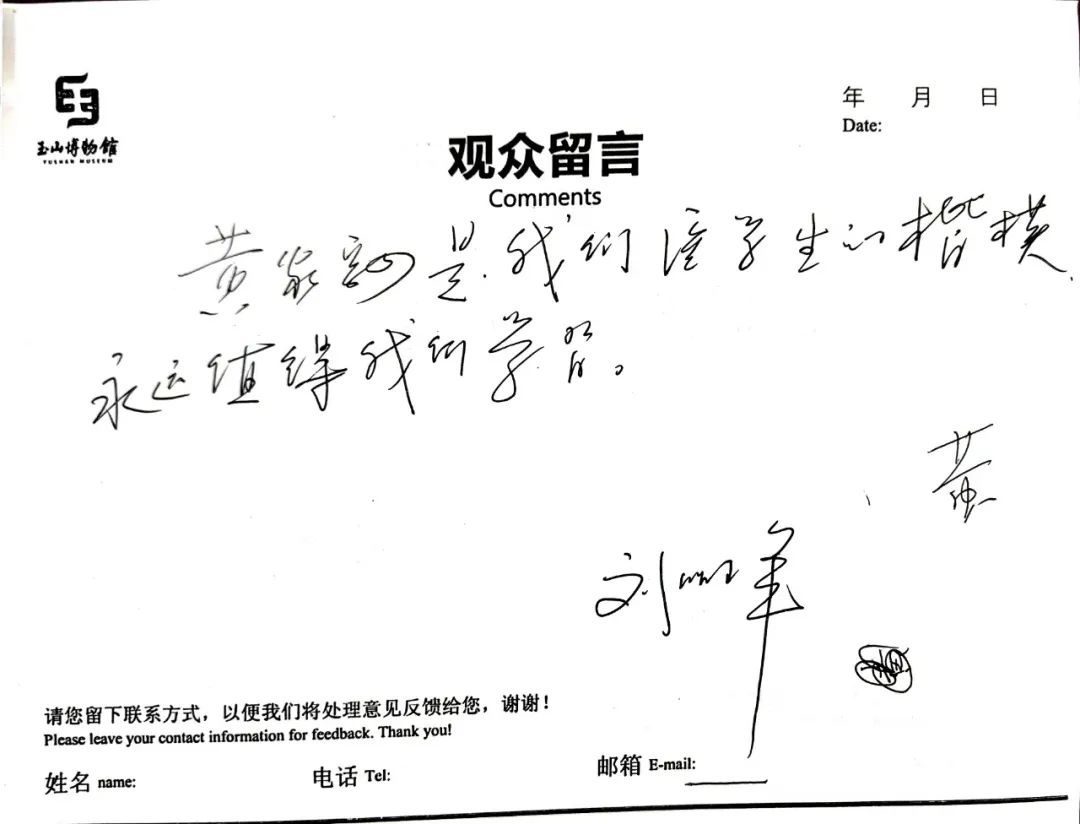 玉山博物馆
YUSHAN MUSEUM
年 月 日
Date:
观众留言
Comments
黄家驷是我们医学生的楷模
永远值得我们学习。
黄
刘
请您留下联系方式，以便我们将处理意见反馈给您，谢谢！
Please leave your contact information for feedback. Thank you!
姓名 name: 电话 Tel: 邮箱 E-mail: